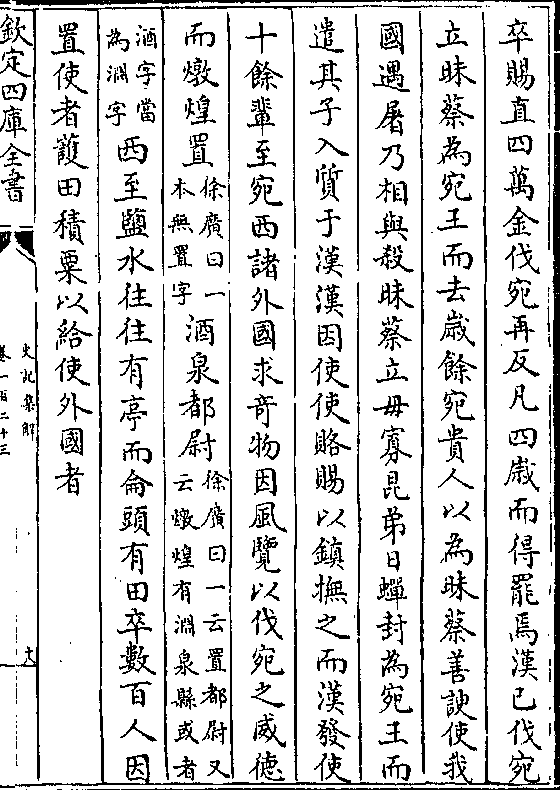 卒賜直四萬金伐宛再反凡四歲而得罷焉漢已伐宛
立昧蔡為宛王而去歲餘宛貴人以為昧蔡善諛使我
國遇屠乃相與殺昧蔡立毋寡昆弟曰蟬封為宛王而
遣其子入質于漢漢因使使賂賜以鎮撫之而漢發使
十餘輩至宛西諸外國求竒物因風覽以伐宛之威徳
而燉煌置徐廣曰一本無置字酒泉都尉徐廣曰一云置都尉又云燉煌有淵泉縣或者
酒字當為淵字西至鹽水往往有亭而侖頭有田卒數百人因
置使者䕶田積粟以給使外國者
欽定四庫全書
史記集解
卷一百二十三